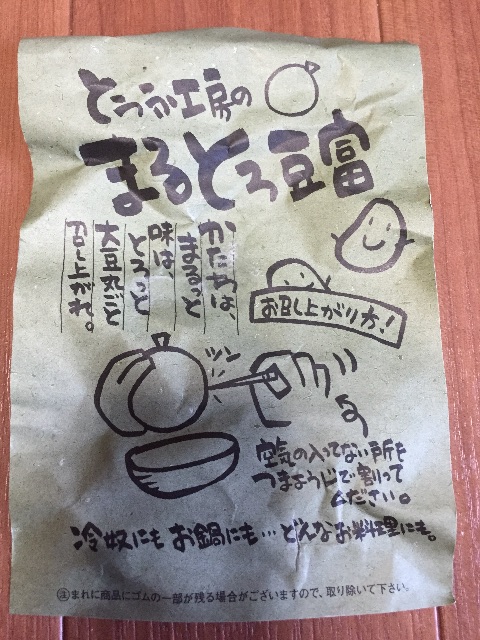 とうふ工房の
まるとろ豆富
かたちは、
まるっと
味は
とろっと
大豆丸ごと
召し上がれ。
お召し上がり方!
ツン
空気の入ってない所を
つまようじで割って
ください。
冷奴にもお鍋にも…どんなお料理にも。
注まれに商品にゴムの一部が残る場合がございますので、取り除いて下さい。